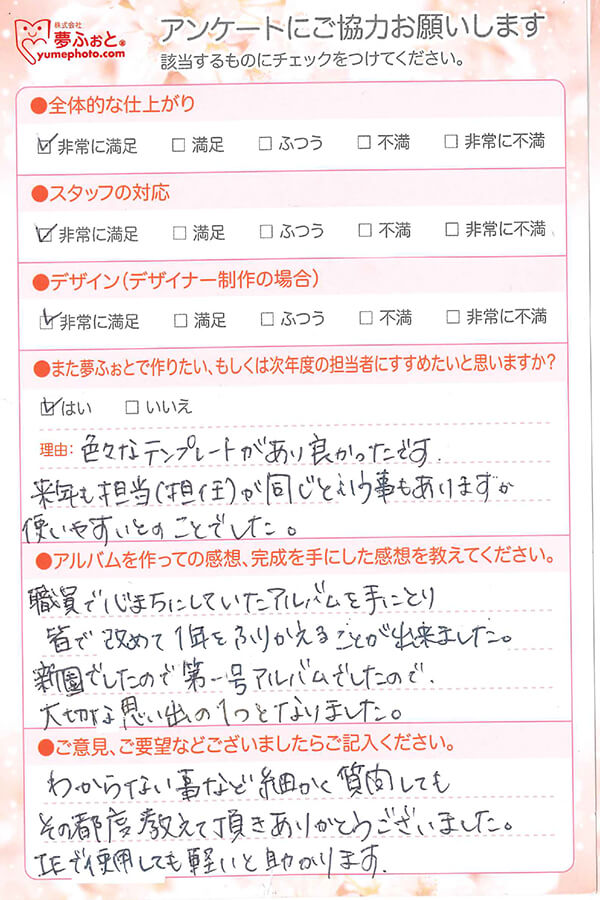 株式会社
夢ふぉと®
yumephoto.com
アンケートにご協力お願いします
該当するものにチェックをつけてください。
●全体的な仕上がり
☑ 非常に満足 □ 満足 □ ふつう □ 不満 □ 非常に不満
●スタッフの対応
☑ 非常に満足 □ 満足 □ ふつう □ 不満 □ 非常に不満
●デザイン(デザイナー制作の場合)
☑ 非常に満足 □ 満足 □ ふつう □ 不満 □ 非常に不満
●また夢ふぉとで作りたい、もしくは次年度の担当者にすすめたいと思いますか?
☑ はい □ いいえ
理由: 色々なテンプレートがあり良かったです.
来年も担当(担任)が同じという事もありますが
使いやすいとのことでした。
●アルバムを作っての感想、完成を手にした感想を教えてください。
職員で心まちにしていたアルバムを手にとり
皆で改めて1年をふりかえることが出来ました。
新園でしたので第一号アルバムでしたので.
大切な思い出の1つとなりました。
●ご意見、ご要望などございましたらご記入ください。
わからない事など細かく質問しても
その都度教えて頂きありがとうございました。
IEで使用しても軽いと助かります.